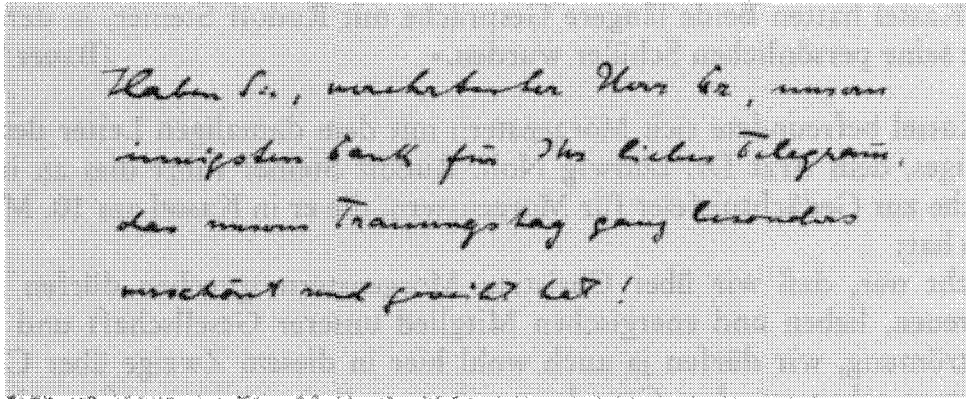 Haben Sie, verehrtester Herr Dr., unsern
innigsten Dank für Ihr liebes Telegram̅,
das unsern Trauungstag ganz besonders
verschönt und geweiht hat!